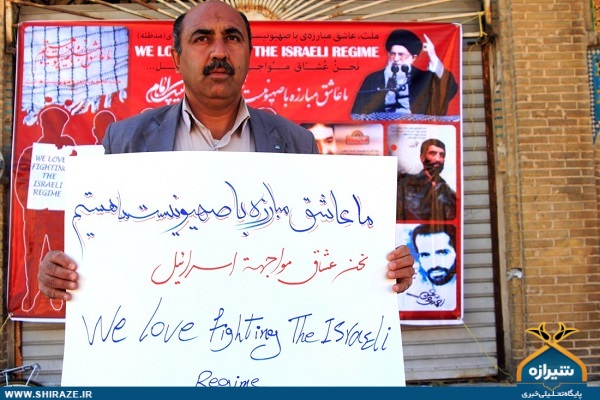 ملت، عاشق مبارزه‌ی با صهیونیست
(مدظله)
WE LO
THE ISRAELI REGIME
نحنُ عُشّاق مواج
ما عاشق مبارزه با صهیونیست
WE LOVE
FIGHTING
THE
ISRAELI
REGIME
ما عاشق مبارزه با صهیونیست ها هستیم
نحن عشاق مواجهة اسرائیل
We love fighting The ISraeli
Regime
شیرازه
پایگاه تحلیلی خبری
WWW.SHIRAZE.IR
WWW.SHIRAZE.IR